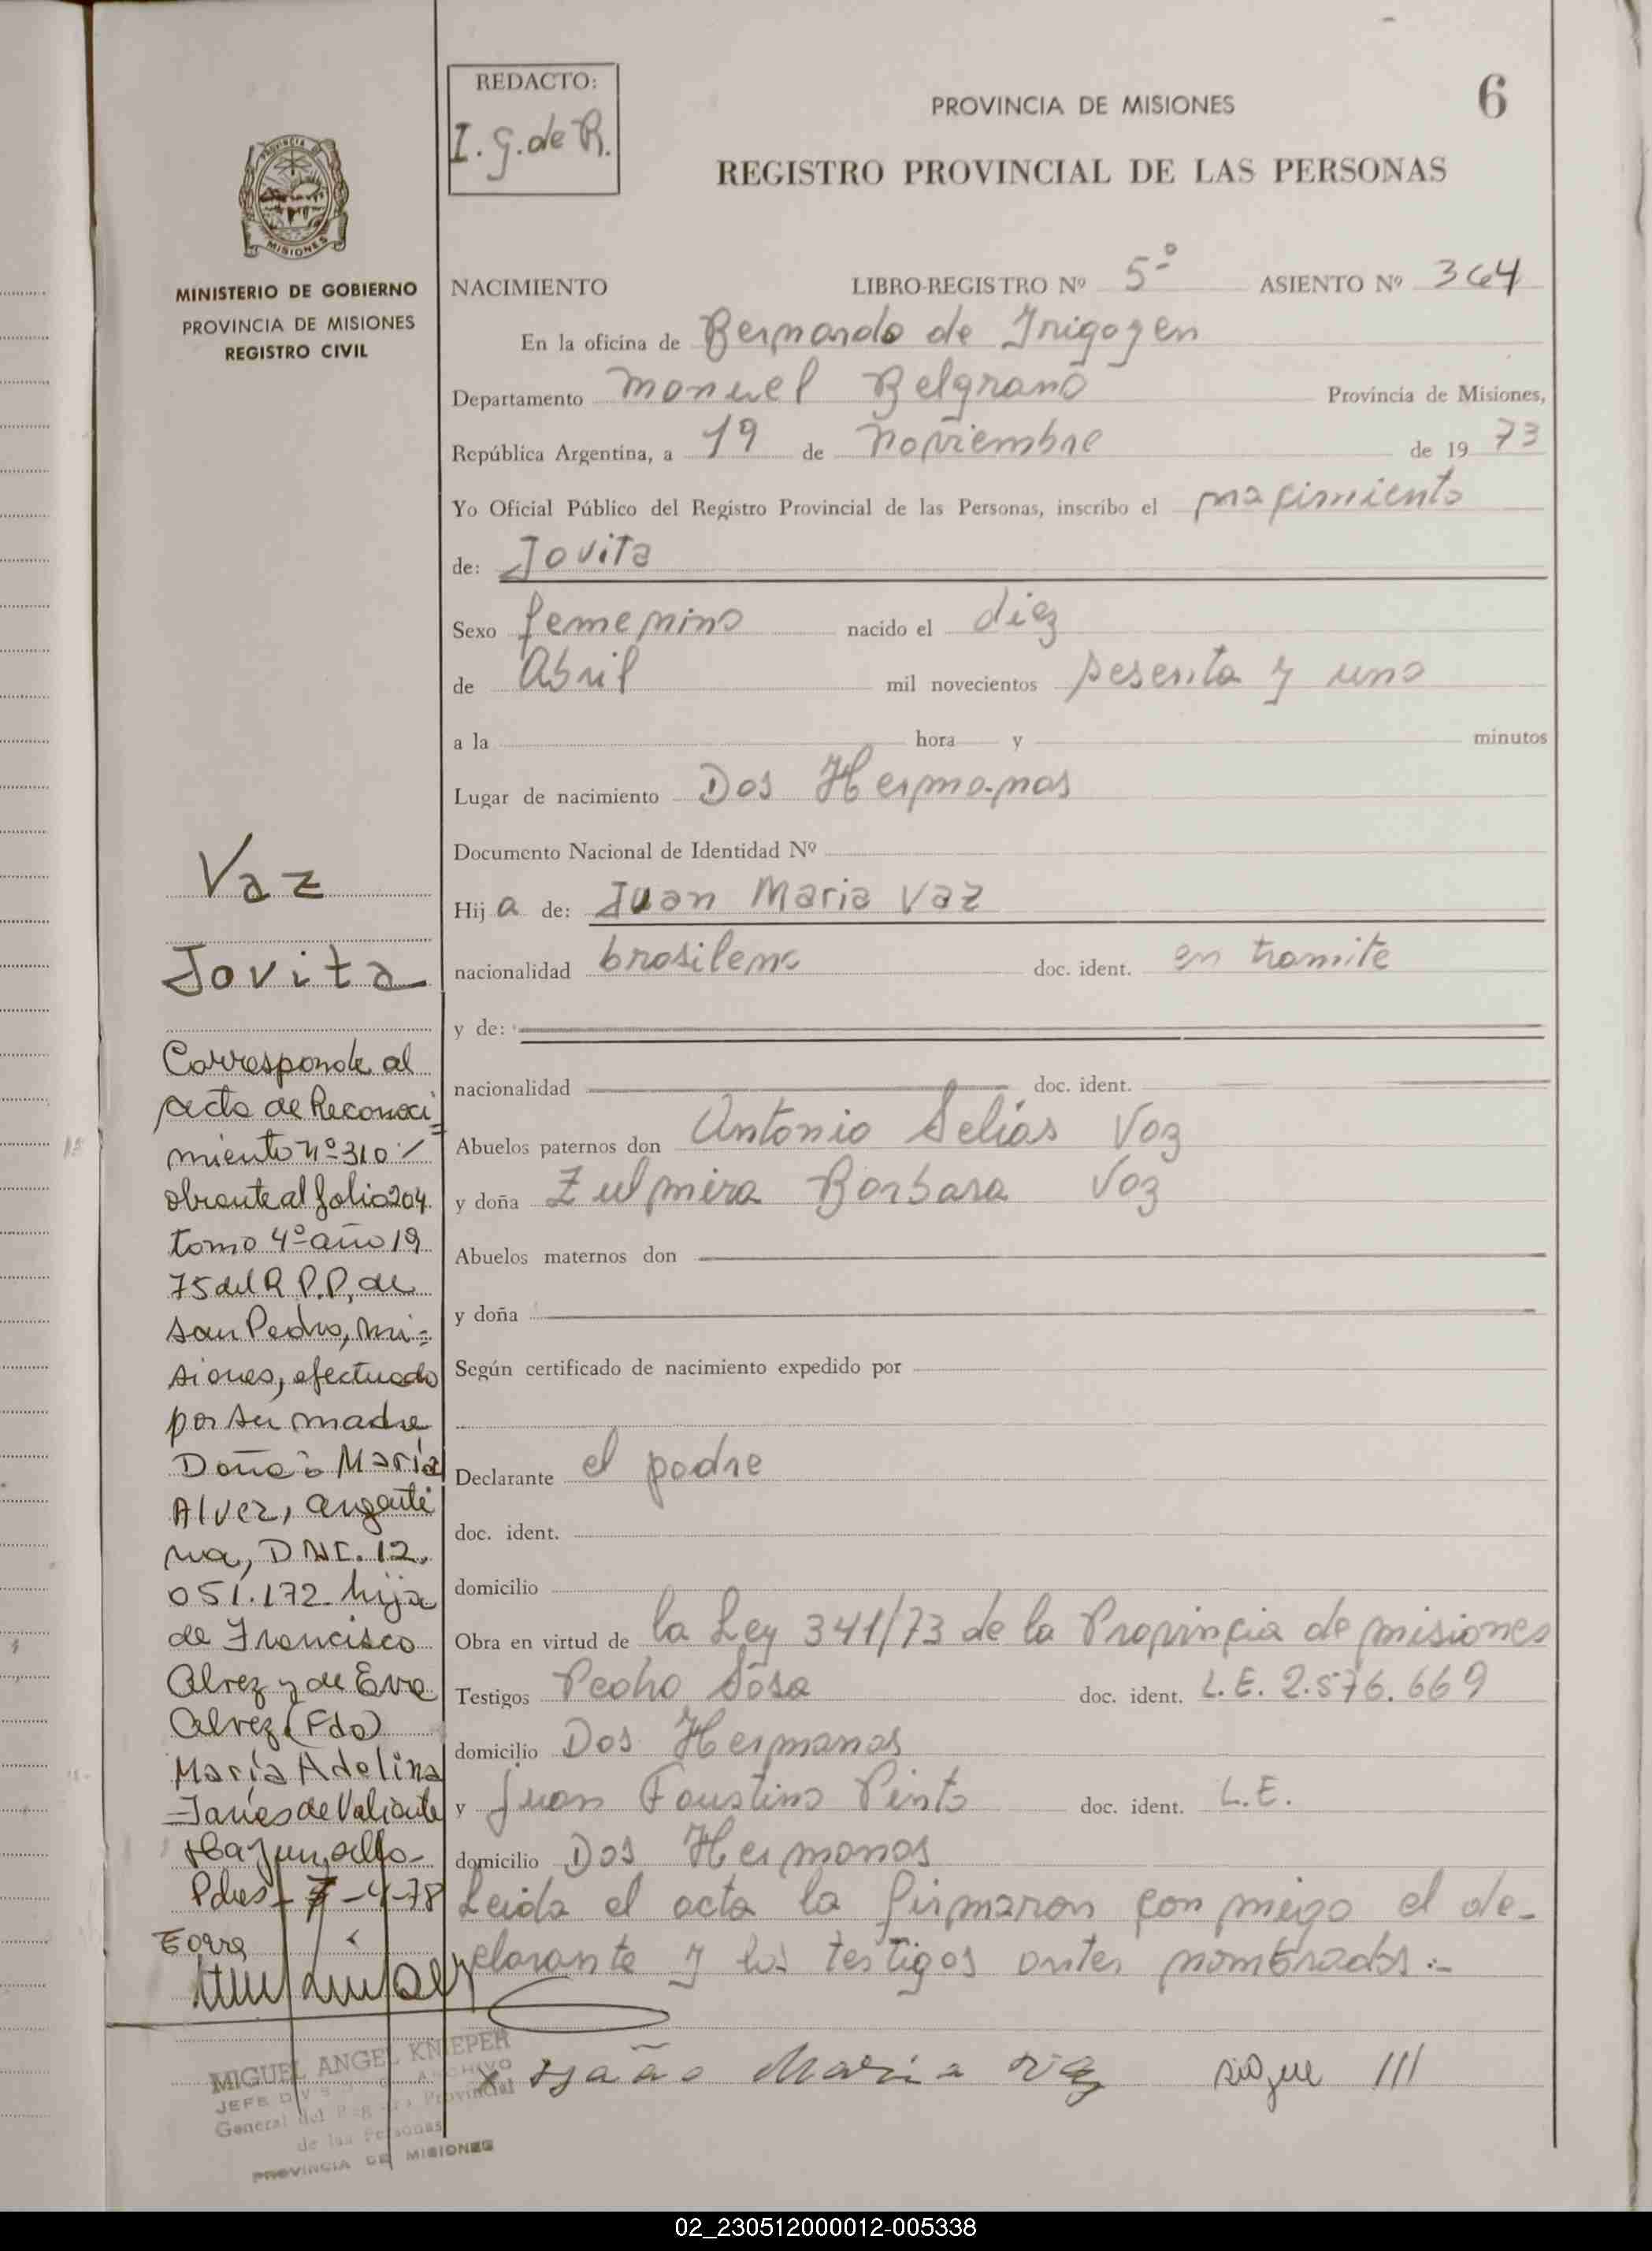 REDACTO:
I. G. de R.
PROVINCIA DE MISIONES
6
REGISTRO PROVINCIAL DE LAS PERSONAS
MISIONES
MINISTERIO DE GOBIERNO
PROVINCIA DE MISIONES
REGISTRO CIVIL
NACIMIENTO LIBRO-REGISTRO Nº 5º ASIENTO Nº 364
En la oficina de Bernardo de Irigoyen
Departamento Manuel Belgrano Provincia de Misiones,
República Argentina, a 19 de Noviembre de 19 73
Yo Oficial Público del Registro Provincial de las Personas, inscribo el nacimiento
de: Jovita
Sexo femenino nacido el diez
de Abril mil novecientos sesenta y uno
a la hora y minutos
Lugar de nacimiento Dos Hermanas
Documento Nacional de Identidad Nº
Hij a de: Juan Maria Vaz
nacionalidad brasilena doc. ident. en tramite
y de:
nacionalidad doc. ident.
Abuelos paternos don Antonio Selias Vaz
y doña Zulmira Barbara Vaz
Abuelos maternos don
y doña
Según certificado de nacimiento expedido por
Declarante el padre
doc. ident.
domicilio
Obra en virtud de la Ley 341/73 de la Provincia de misiones
Testigos Pedro Sosa doc. ident. L.E. 2.576.669
domicilio Dos Hermanas
y Juan Faustino Pinto doc. ident. L.E.
domicilio Dos Hermanas
Leida el acta la firmaron con migo el de-
clarante y los testigos antes nombrados.-
x Jaão Maria Vaz sigue ///
Vaz
Jovita
Corresponde al
acta de Reconoci
miento nº 310 %
obrante al folio 204
tomo 4º año 19
75 del R.P.P. de
San Pedro, Mi=
siones, efectuado
por su madre
Doña María
Alvez, argenti
na, DNI. 12.
051.172 hija
de Francisco
Alvez y de Eva
Alvez (Fdo)
María Adelina
Janes de Valiente
Hay un sello-
Pdas- 7-4-78
MIGUEL ANGEL KNIEPER
JEFE DIVISION ARCHIVO
General del Registro Provincial
de las Personas
PROVINCIA DE MISIONES
02_230512000012-005338